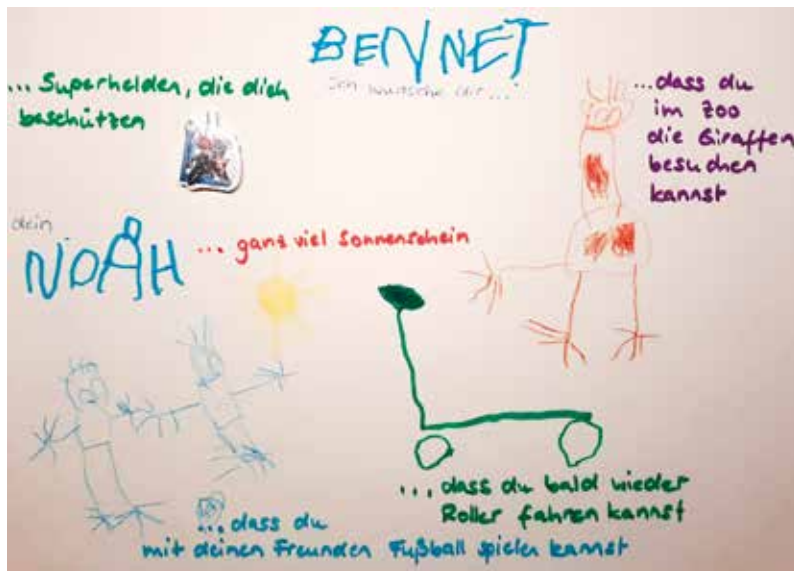 BENNET
Ich wünsche dir...
... Superhelden, die dich
beschützen
...dass du
im Zoo
die Giraffen
besuchen
kannst
dein
NOAH
... ganz viel Sonnenschein
...dass du bald wieder
Roller fahren kannst
...dass du
mit deinen Freunden Fußball spielen kannst